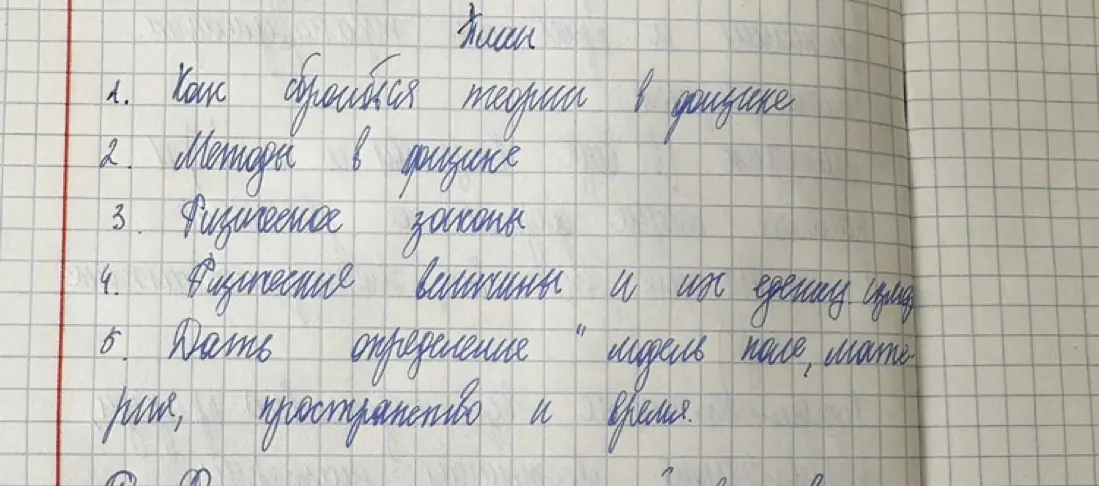 План
1. Как строятся теории в физике
2. Методы в физике
3. Физические законы
4. Физические величины и их едениц измер
5. Дать определение " модель поле, мате-
рия, пространство и время.